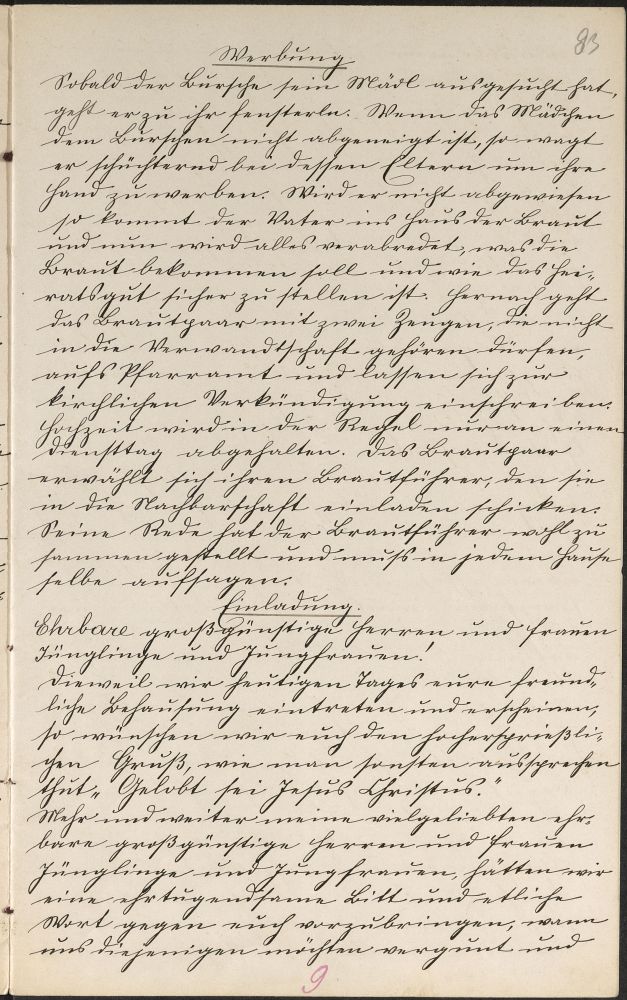 83
Werbung
Sobald der Bursche sein Mädl ausgesucht hat,
geht er zu ihr fensterln. Wenn das Mädchen
dem Burschen nicht abgeneigt ist, so wagt
er schüchternd bei dessen Eltern um ihre
Hand zu werben. Wird er nicht abgewiesen
so kommt der Vater ins Haus der Braut
und nun wird alles verabredet, was die
Braut bekommen soll und wie das Hei-
ratsgut sicher zu stellen ist. Hernach geht
das Brautpaar mit zwei Zeugen, die nicht
in die Verwandtschaft gehören dürfen,
aufs Pfarramt und lassen sich zur
kirchlichen Verkündigung einschreiben.
Hochzeit wird in der Regel nur an einem
Diensttag abgehalten. Das Brautpaar
erwählt sich ihren Brautführer, den sie
in die Nachbarschaft einladen schicken.
Seine Rede hat der Brautführer wohl zu
sammen gestellt und muss in jedem Hause
selbe aufsagen.
Einladung.
Ehrbare großgünstige Herren und Frauen
Jünglinge und Jungfrauen!
Dieweil wir heutigen Tages eure freund-
liche Behausung eintreten und erscheinen,
so wünschen wir euch den hochersprießli-
chen Gruß, wie man sonsten aussprechen
thut „Gelobt sei Jesus Christus."
Mehr und weiter meine vielgeliebten ehr-
bare großgünstige Herren und Frauen
Jünglinge und Jungfrauen, hätten wir
eine ehrtugendsame Bitt und etliche
Wort gegen euch vorzubringen, wann
uns diejenigen möchten vergunt und
9